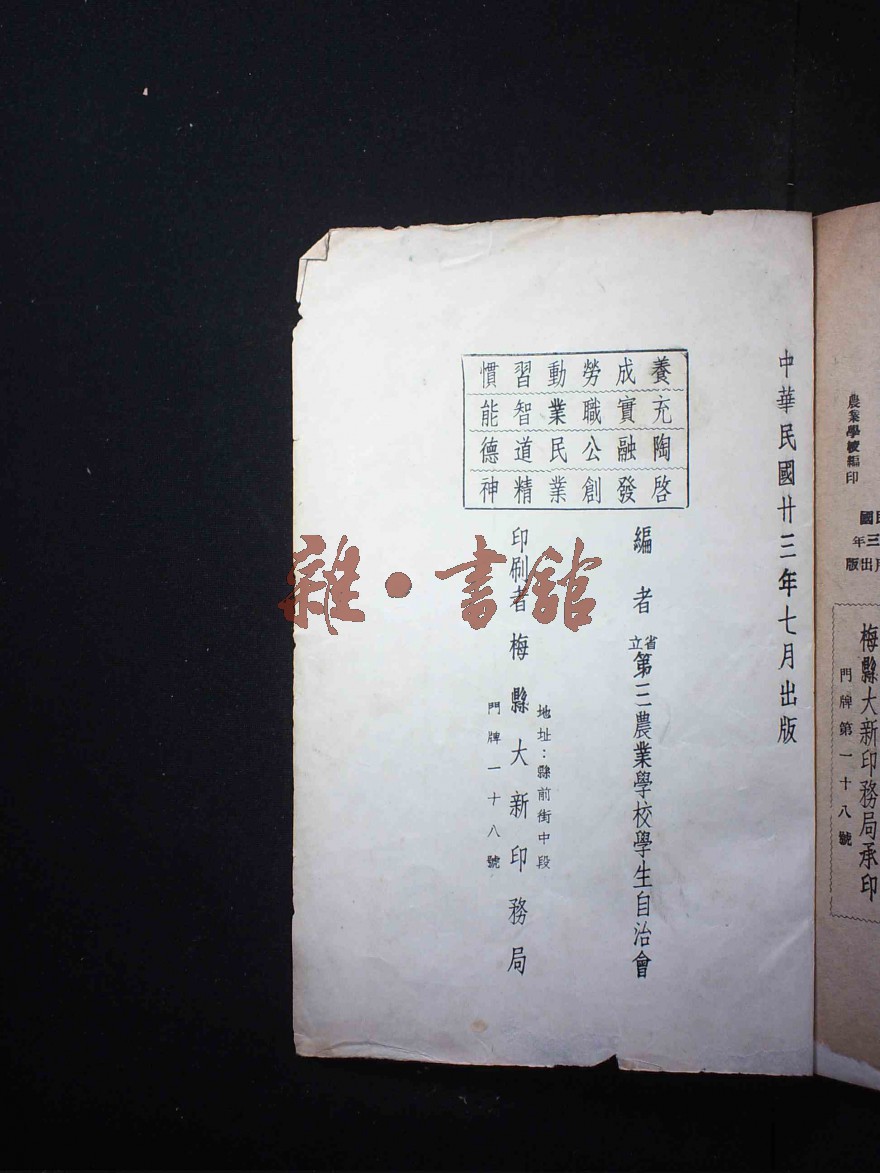 中華民國廿三年七月出版
養成勞動習慣
充實職業智能
陶融公民道德
啓發創業精神
編者 省立第三農業學校學生自治會
印刷者 梅縣大新印務局
地址：縣前街中段
門牌一十八號
農業學校編印
國
三年
出版
梅縣大新印務局承印
門牌第一十八號
雜·書館